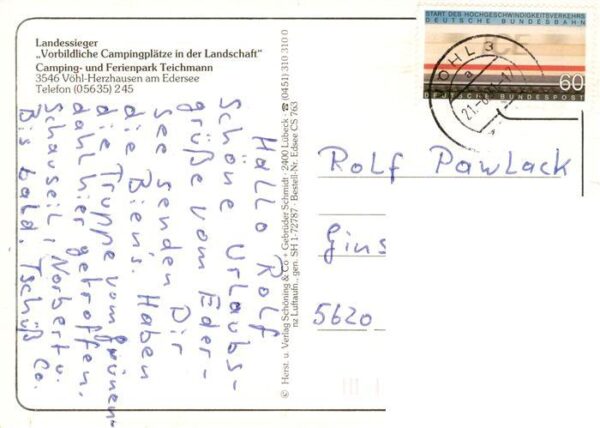 Landessieger
„Vorbildliche Campingplätze in der Landschaft"
Camping- und Ferienpark Teichmann
3546 Vöhl-Herzhausen am Edersee
Telefon (05635) 245
Hallo Rolf
Schöne Urlaubs-
grüße vom Eder-
see senden Dir
die Biens. Haben
die Truppe vom Grünen-
dahl hier getroffen.
Schauseil, Norbert u.
Co.
Bis bald, Tschüß
© Herst. u. Verlag Schöning & Co + Gebrüder Schmidt · 2400 Lübeck · ☎ (0451) 310 310 0
nz Luftaufn.-gen. SH 1-72787 · Bestell-Nr. Edsee CS 763
START DES HOCHGESCHWINDIGKEITSVERKEHRS
DEUTSCHE BUNDESBAHN
ICE
60
DEUTSCHE BUNDESPOST
VÖHL 3
a
Rolf Pawlack
Gins
5620